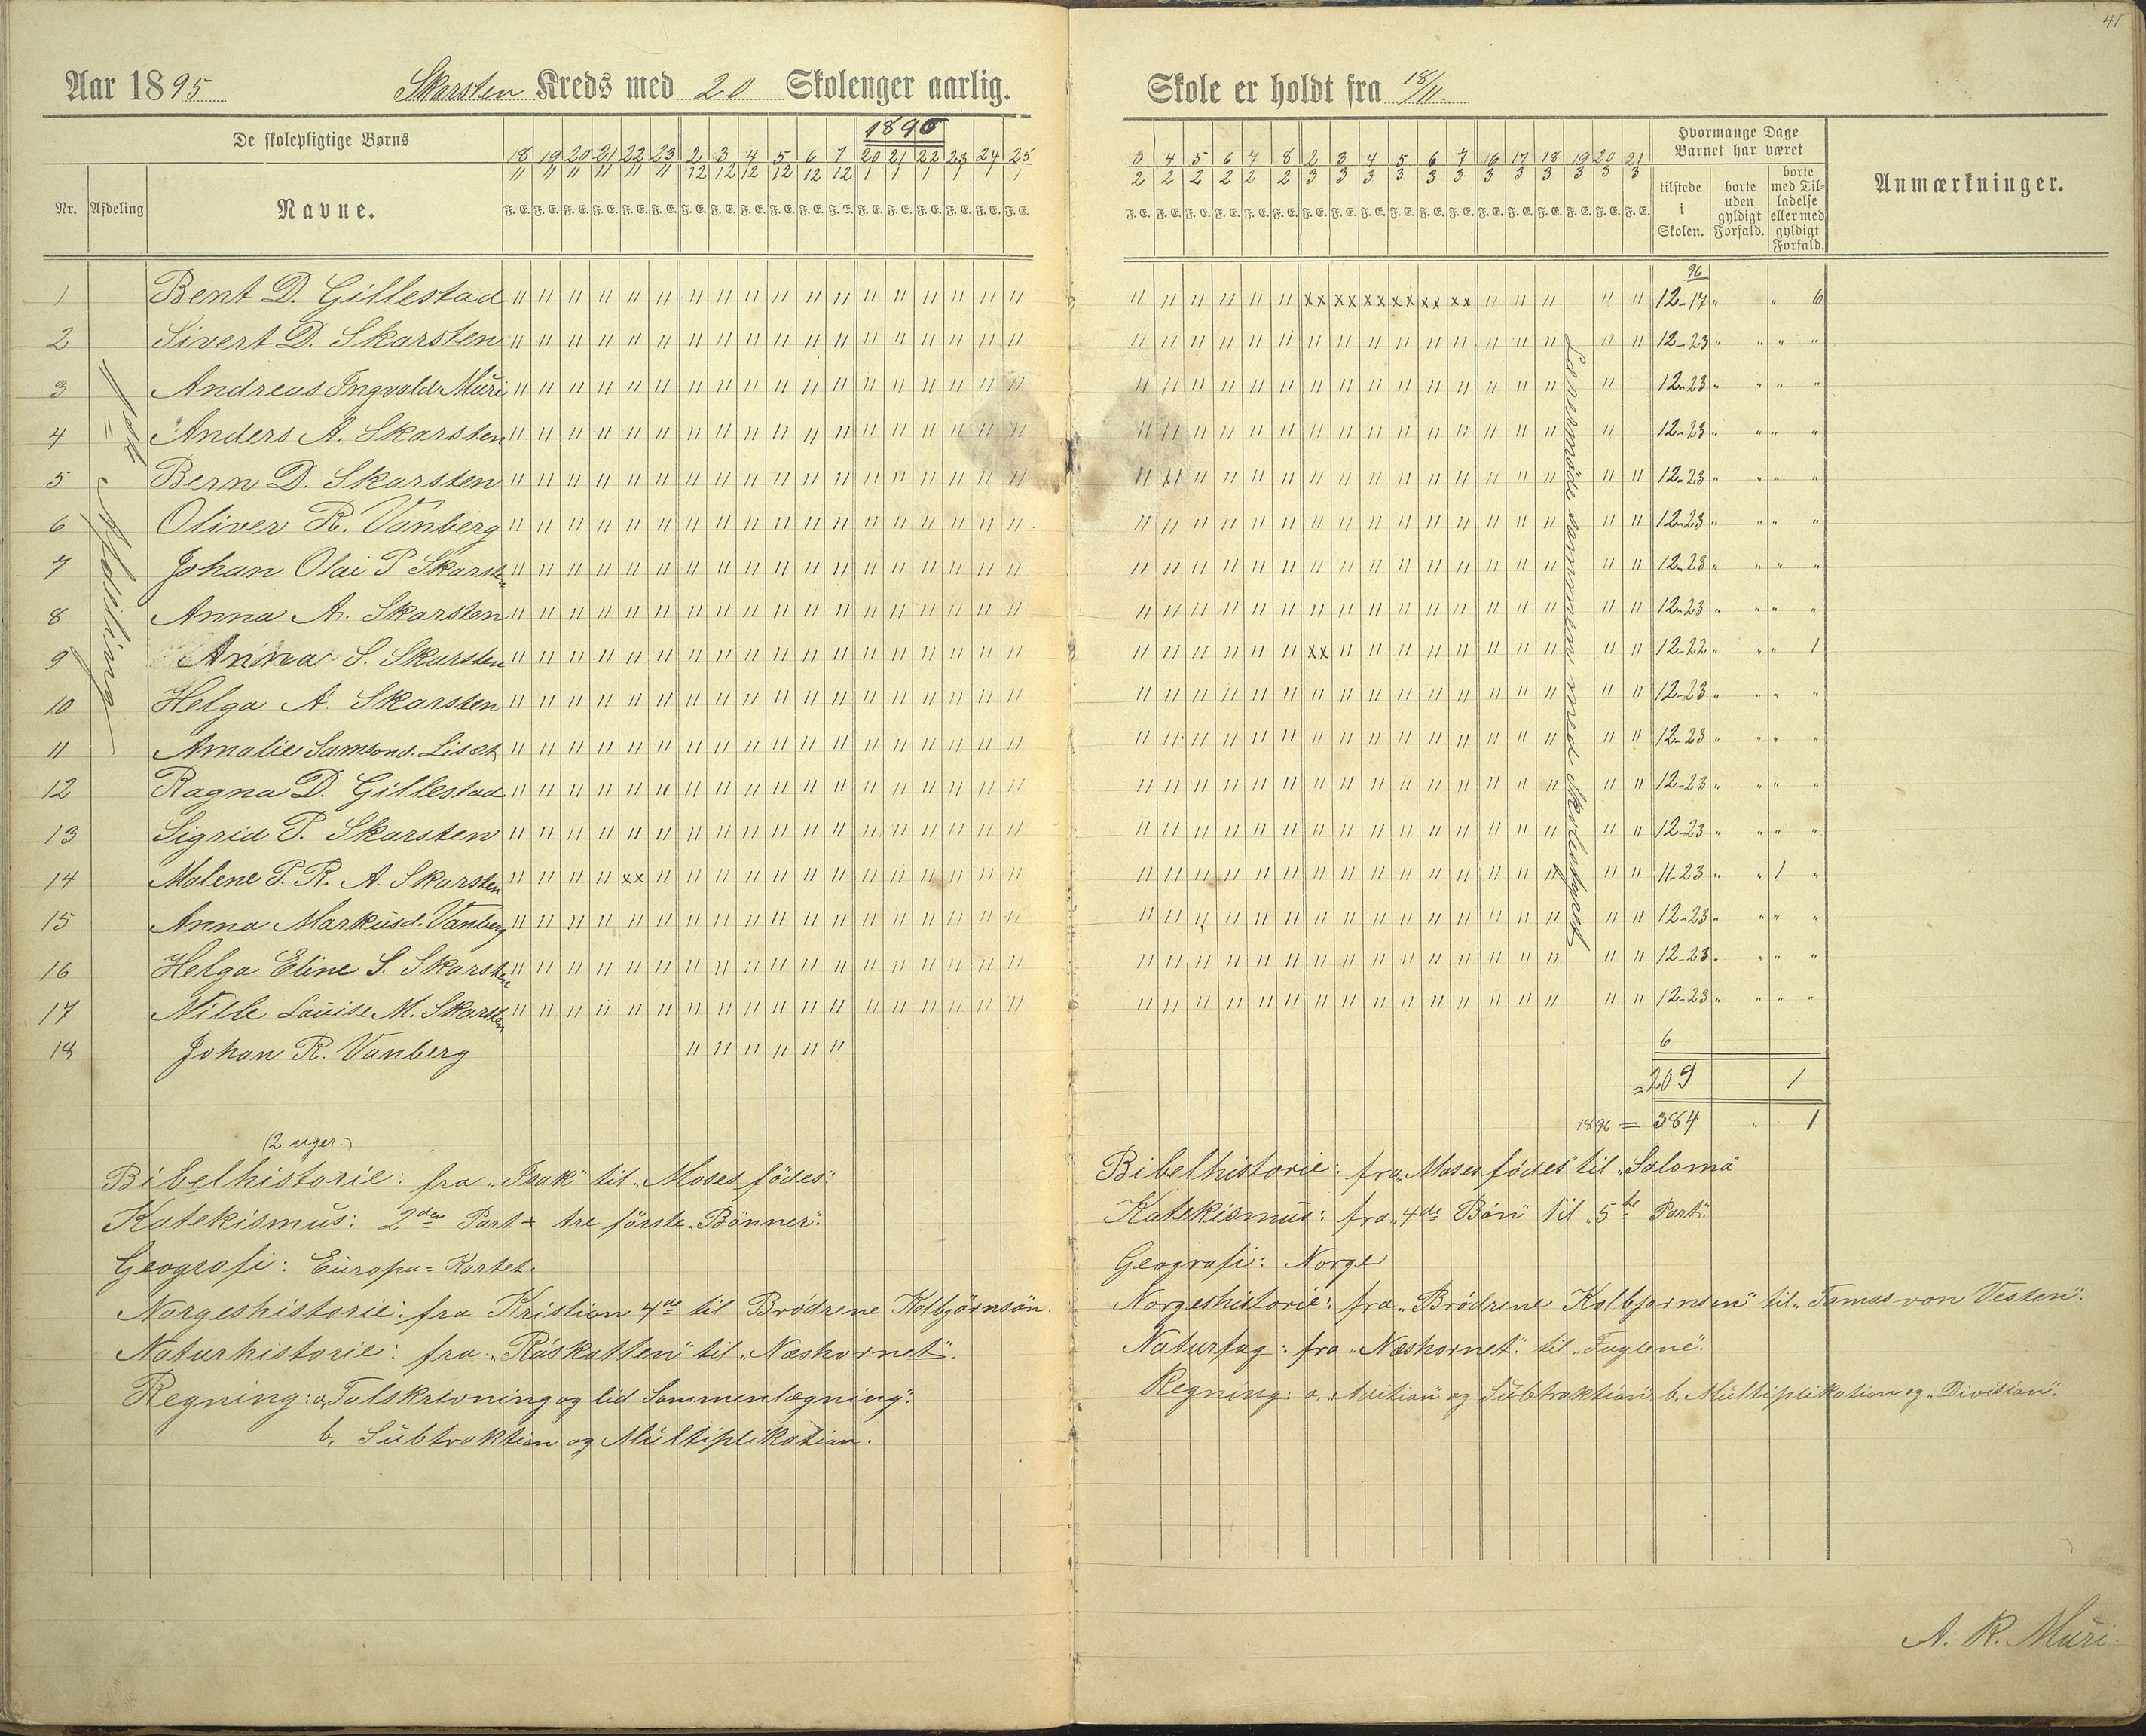 41
Aar 1895 Skarsten Kreds med 20 Skoleuger aarlig. Skole er holdt fra 18/11.
De skolepligtige Børns
1896
18/11 19/11 20/11 21/11 22/11 23/11 2/12 3/12 4/12 5/12 6/12 7/12 20/1 21/1 22/1 23/1 24/1 25/1
3/2 4/2 5/2 6/2 7/2 8/2 2/3 3/3 4/3 5/3 6/3 7/3 16/3 17/3 18/3 19/3 20/3 21/3
Hvormange Dage Barnet har været
tilstede i Skolen.
borte uden gyldigt Forfald.
borte med Tilladelse eller med gyldigt Forfald.
Anmærkninger.
Nr. Afdeling Navne.
F. E. F. E. F. E. F. E. F. E. F. E. F. E. F. E. F. E. F. E. F. E. F. E. F. E. F. E. F. E. F. E. F. E. F. E.
F. E. F. E. F. E. F. E. F. E. F. E. F. E. F. E. F. E. F. E. F. E. F. E. F. E. F. E. F. E. F. E. F. E. F. E.
1ste Afdeling
Lærermøde sammen med Skolestyret
96
1 Bent D. Gillestad xx xx xx xx xx xx 12-17 " " 6
2 Sivert D. Skarsten 12-23 " " " "
3 Andreas Ingvald Muri 12-23 " " "
4 Anders A. Skarsten 12-23 " " " "
5 Bern D. Skarsten 12-23 " " " "
6 Oliver R. Vanberg 12-23 " " " "
7 Johan Olai P Skarsten 12-23 " " " "
8 Anna A. Skarsten 12-23 " " " "
9 Anna S. Skarsten xx 12-22 " " " 1
10 Helga A. Skarsten 12-23 " " " "
11 Amalie Samsond. Liset 12-23 " " " "
12 Ragna D. Gillestad 12-23 " " " "
13 Sigrid P. Skarsten 12-23 " " " "
14 Malene P. R. A. Skarsten xx 11-23 " " 1 "
15 Anna Markusd. Vanberg 12-23 " " " "
16 Helga Eline S. Skarsten 12-23 " " " "
17 Nille Lauise M. Skarsten 12-23 " " " "
18 Johan R. Vanberg 6
= 209 1
1896 = 384 " 1
(2 uger.)
Bibelhistorie: fra "Isak" til "Moses födes".
Katekismus: 2den Part + tre förste "Bönner".
Geografi: Europa= Kartet.
Norgeshistorie: fra Kristian 4de til Brödrene Kolbjörnsön.
Naturhistorie: fra "Råskatten" til "Næshornet".
Regning: a, Talskrivning og lid Sammenlægning".
b, Subtraktion og Multiplikation.
Bibelhistorie: fra "Moses födes" til "Saloma
Katekismus: fra "4de Bön" til "5te Part".
Geografi: Norge
Norgeshistorie: fra "Brödrene Kolbjørnsen" til "Tomas von Vesten".
Naturfag: fra "Næshornet" til "Fuglene".
Regning: a. Adition og Subtraktion. b. Multiplikation og "Division".
A. R. Muri.